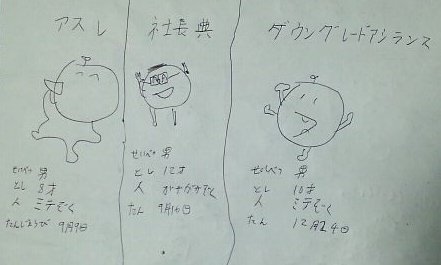 アスレ
せいべつ 男
とし 8才
人 ミテぞく
たんじょうび 9月9日
社長典
せいべつ 男
とし 12才
人
たん 9月10日
ダウングレードアシランス
せいべつ 男
とし 10才
人 ミテぞく
たん 12月24日